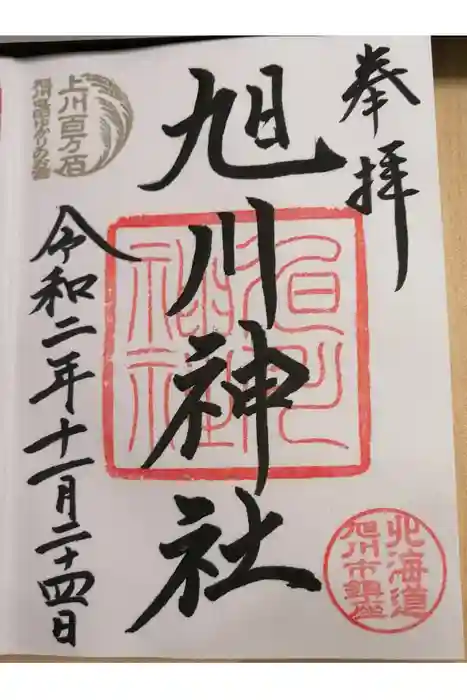 奉拝
旭川神社
令和二年十一月二十四日
上川百万石
旭川神社
北海道
旭川市鎮座